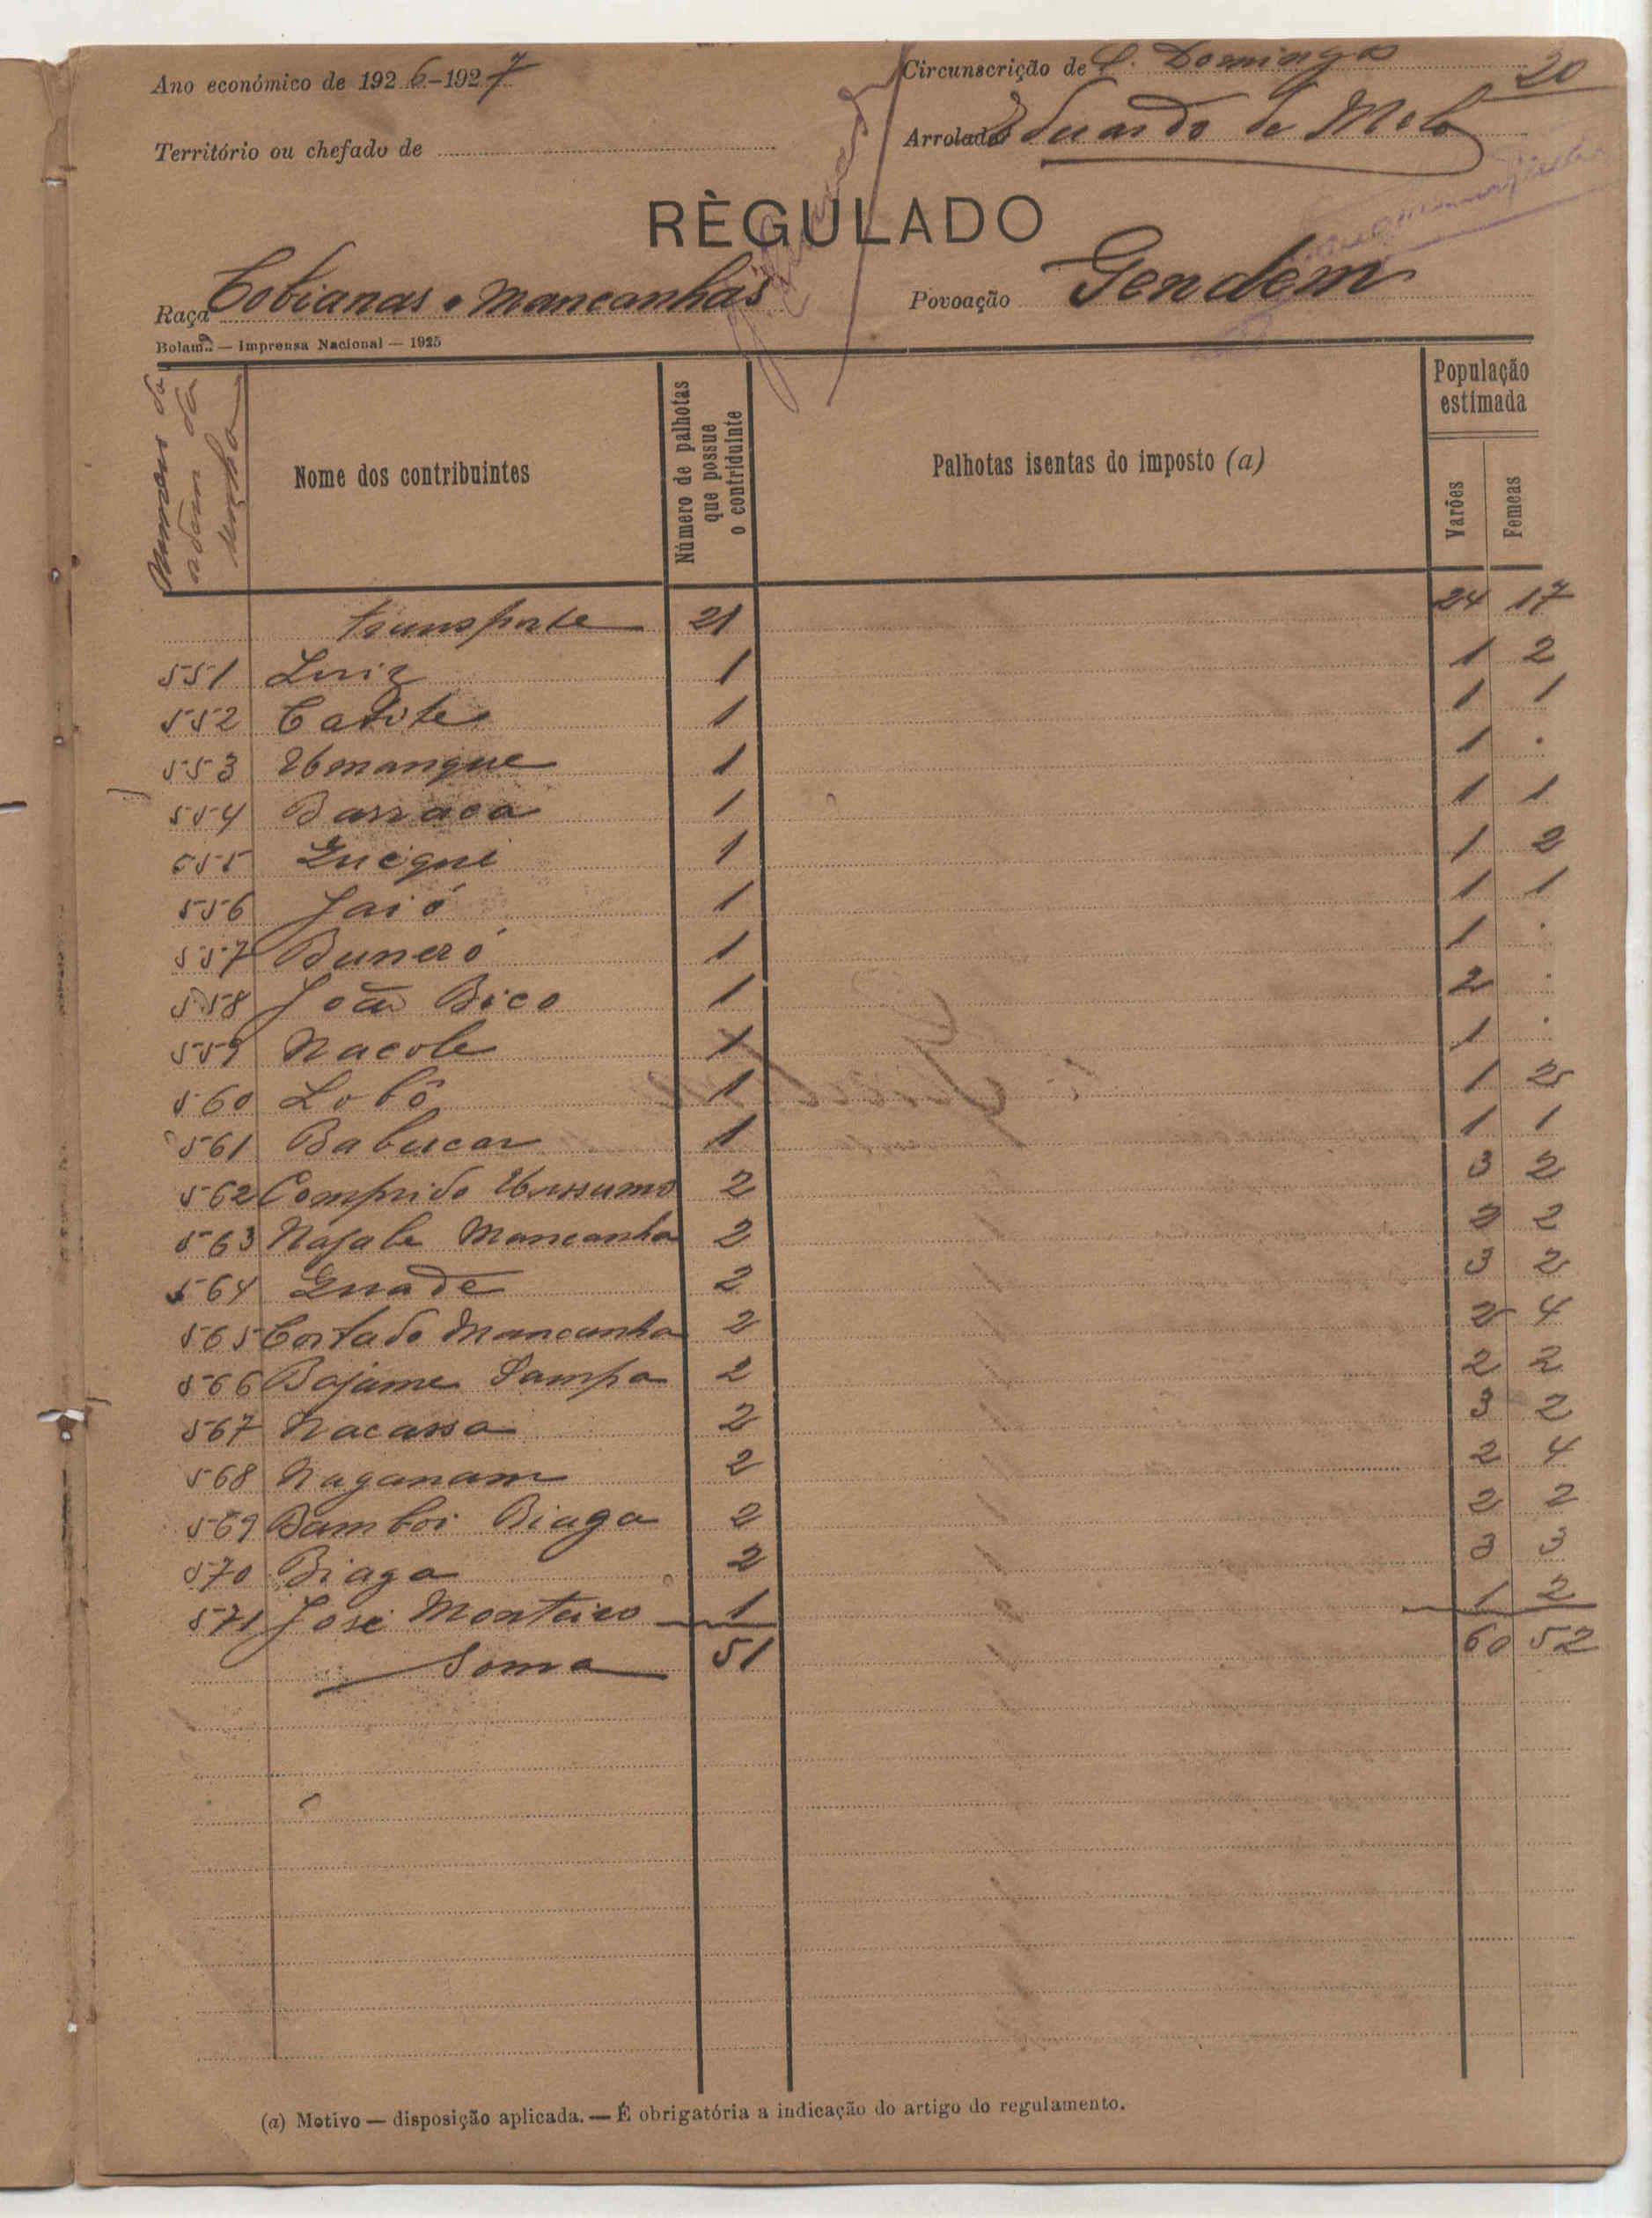 Ano económico de 1926-1927
Circunscrição de S. Domingos
20
Território ou chefado de
Arrolador Eduardo de Melo
RÈGULADO
Raça Cobianas e mancanhas
Povoação Gendem
Bolama — Imprensa Nacional — 1925
Numero de ordem da
Nome dos contribuintes
Número de palhotas que possue o contriduinte
Palhotas isentas do imposto (a)
População estimada
Varões
Femeas
transporte 21 24 17
551 Luiz 1 1 2
552 Cadite 1 1 1
553 Umangue 1 1 .
554 Barraca 1 1 1
555 Guigui 1 1 2
556 Jaió 1 1 1
557 Buneró 1 1 .
558 João Bico 1 2 .
559 Nacole 1 1 .
560 Lobô 1 1 2
561 Babucar 1 1 1
562 Comprido Ussumo 2 3 2
563 Nafale Mancanha 2 2 2
564 Guade 2 3 2
565 Cortado Mancanha 2 2 4
566 Bajame Sampa 2 2 2
567 Nacassa 2 3 2
568 Naganam 2 2 4
569 Bamboi Biaga 2 2 2
570 Biaga 2 3 3
571 José Monteiro 1 1 2
Soma 51 60 52
(a) Motivo — disposição aplicada. — É obrigatória a indicação do artigo do regulamento.